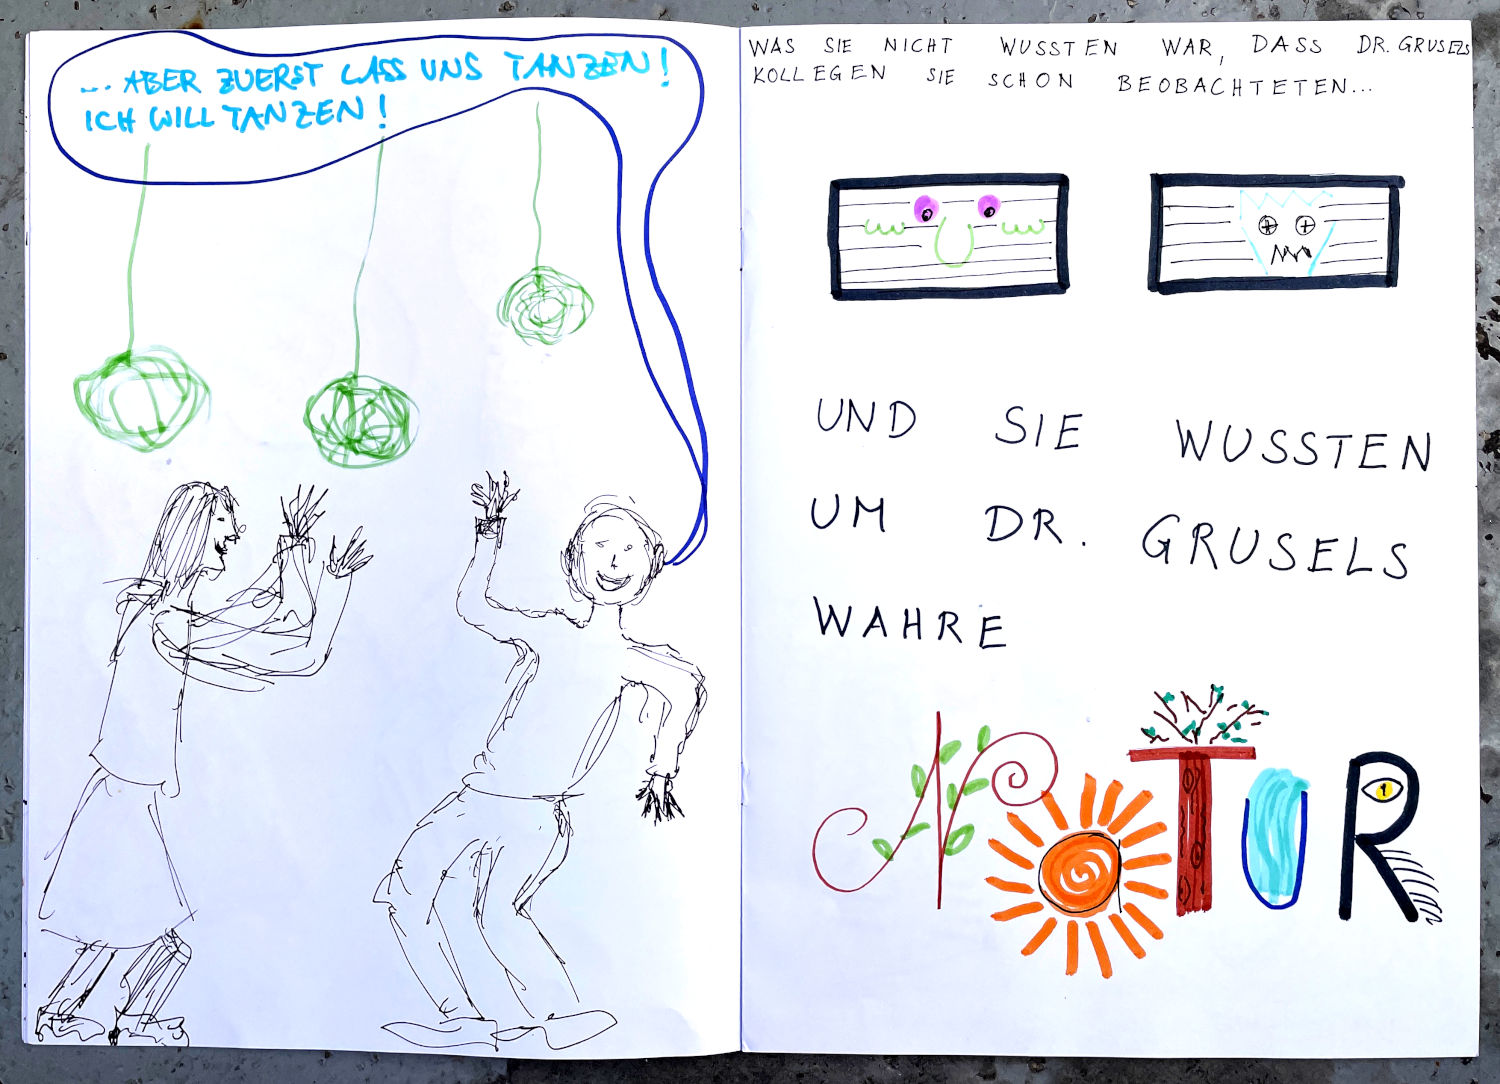 ... ABER ZUERST LASS UNS TANZEN!
ICH WILL TANZEN!
WAS SIE NICHT WUSSTEN WAR, DASS DR. GRUSELS
KOLLEGEN SIE SCHON BEOBACHTETEN...
UND SIE WUSSTEN
UM DR. GRUSELS
WAHRE
NaTUR